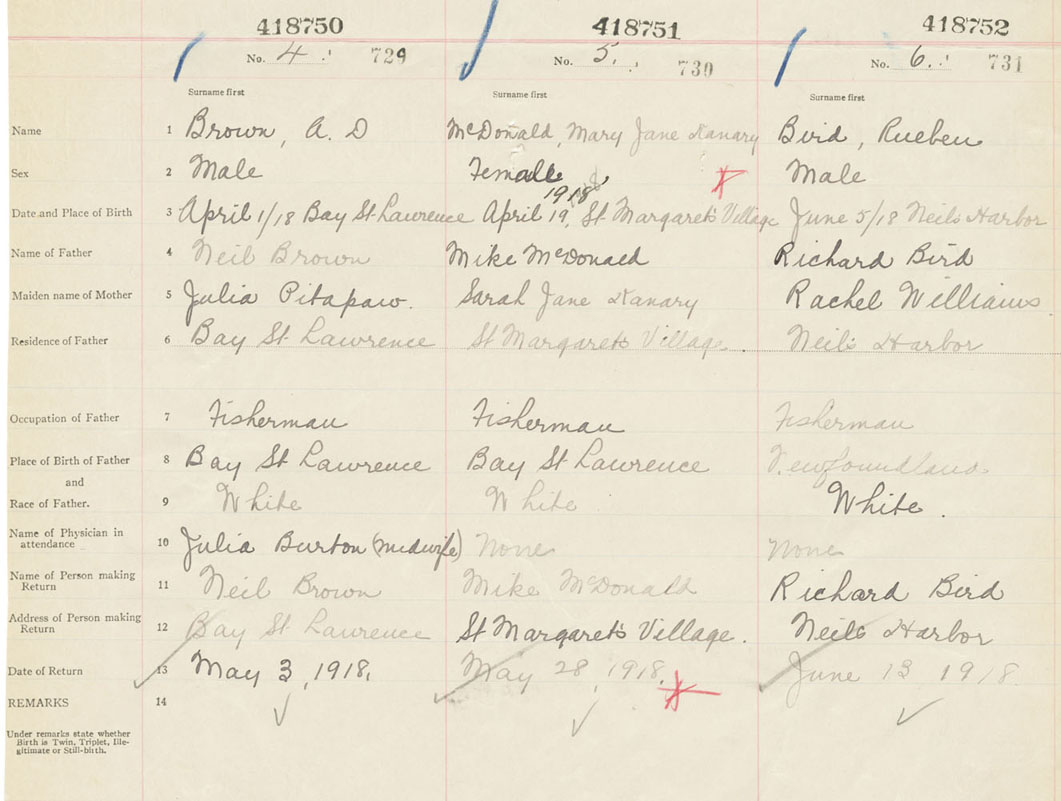 418750 418751 418752
No. 4 729 No. 5. 730 No. 6. 731
Surname first Surname first Surname first
Name 1 Brown, A. D McDonald, Mary Jane Danary Bird, Rueben
Sex 2 Male Female Male
1918
Date and Place of Birth 3 April 1/18 Bay St. Lawrence April 19, St Margarets Village June 5/18 Neils Harbor
Name of Father 4 Neil Brown Mike McDonald Richard Bird
Maiden name of Mother 5 Julia Pitapaw. Sarah Jane Danary Rachel Williams.
Residence of Father 6 Bay St. Lawrence St Margarets Village. Neils Harbor
Occupation of Father 7 Fisherman Fisherman Fisherman
Place of Birth of Father 8 Bay St Lawrence Bay St Lawrence Newfoundland.
and
Race of Father. 9 White White White.
Name of Physician in
attendance 10 Julia Burton (midwife) None None
Name of Person making
Return 11 Neil Brown Mike McDonald Richard Bird
Address of Person making
Return 12 Bay St Lawrence St Margarets Village. Neils Harbor
Date of Return 13 May 3, 1918. May 28, 1918. June 13 1918
REMARKS 14
Under remarks state whether
Birth is Twin, Triplet, Ille-
gitimate or Still-birth.